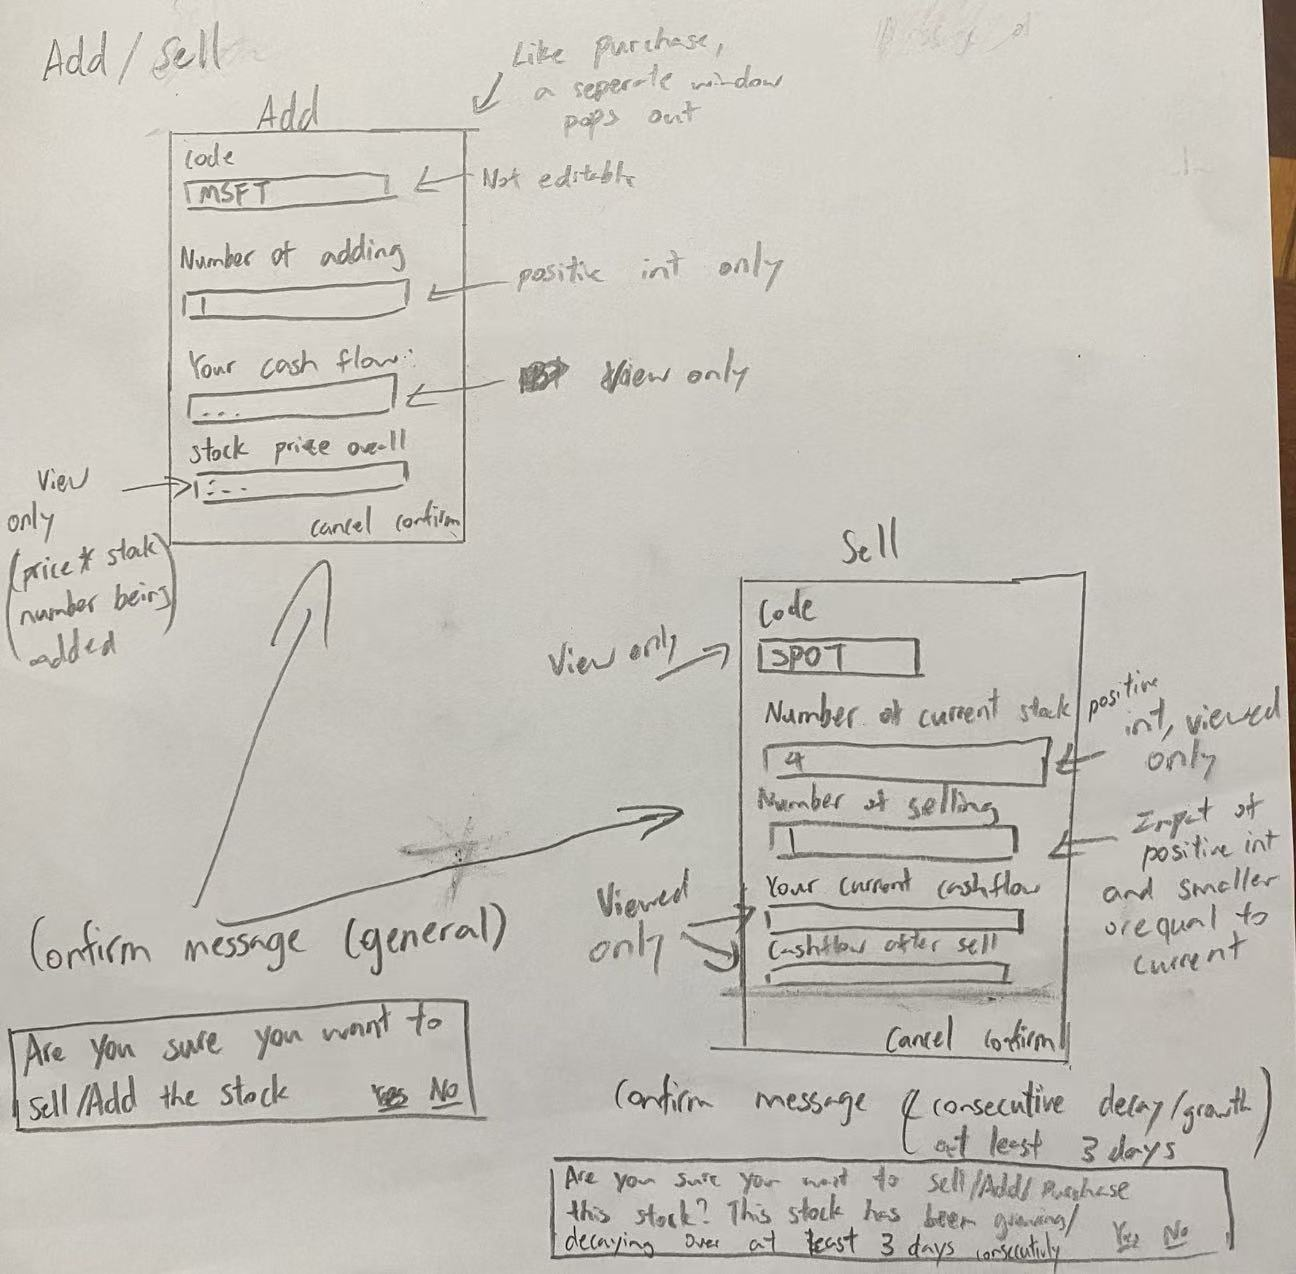 Add / Sell
Like purchase,
a seperate window
pops out
Add
Code
MSFT
Not editable
Number of adding
positive int only
Your cash flow:
...
View only
Stock price overall
...
View
only
(price * stock
number being
added)
Cancel Confirm
Sell
Code
SPOT
View only
Number of current stock
4
positive
int, viewed
only
Number of selling
Input of
positive int
and smaller
or equal to
current
Your current cashflow
Cashflow after sell
Viewed
only
Cancel Confirm
Confirm message (general)
Are you sure you want to
sell/Add the stock Yes No
Confirm message (consecutive decay/growth
at least 3 days)
Are you sure you want to sell/Add/Purchase
this stock? This stock has been growing/
decaying over at least 3 days consecutivly Yes No